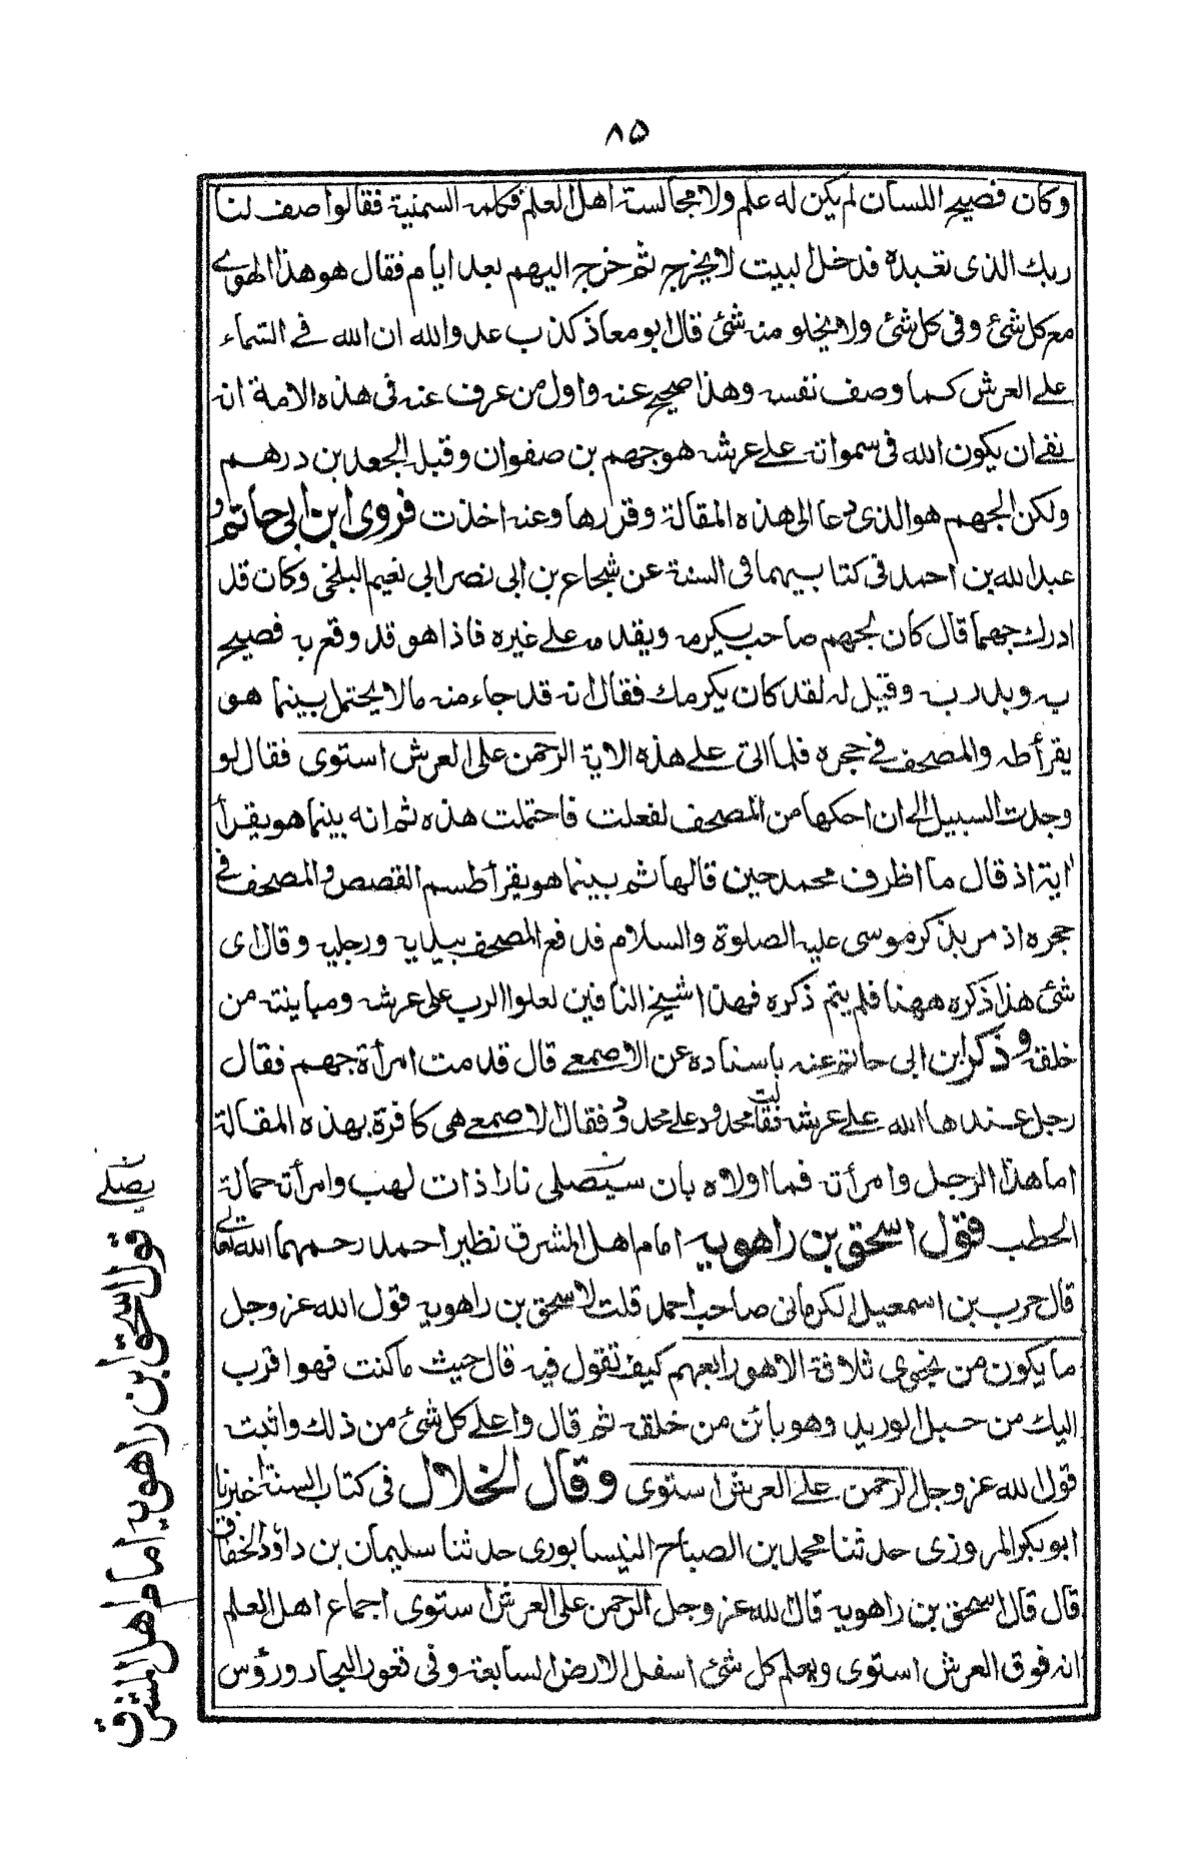 ٨٥
وكان فصيح اللسان لم يكن له علم ولا مجالسة اهل العلم فكلمه السمنية فقالوا صف لنا
ربك الذى تعبده فدخل البيت لا يخرج ثم خرج اليهم بعد ايام فقال هو هذا الهوى
مع كل شئ وفى كل شئ ولا يخلو منه شئ قال ابو معاذ كذب عدو الله ان الله فى السماء
على العرش كما وصف نفسه وهذا صحيح عنه واول من عرف عنه فى هذه الامة انه
نفى ان يكون الله فى سمواته على عرشه هو جهم بن صفوان وقبله الجعد بن درهم
ولكن الجهم هو الذى دعا الى هذه المقالة وقررها وعنه اخذت فروى ابن ابى حاتم و
عبد الله بن احمد فى كتابيهما فى السنة عن شجاع بن ابى نصر ابى نعيم البلخى وكان قد
ادرك جهما قال كان لجهم صاحب يكرمه ويقدمه على غيره فاذا هو قد وقع به فصيح
به وبدر به وقيل له لقد كان يكرمك فقال انه قد جاء منه مالا يحتمل بينما هو
يقرأ طه والمصحف فى حجره فلما اتى على هذه الاية الرحمن على العرش استوى فقال لو
وجدت السبيل الى ان احكها من المصحف لفعلت فاحتملت هذه ثم انه بينما هو يقرأ
اية اذ قال ما اظرف محمد حين قالها ثم بينما هو يقرأ طسم القصص والمصحف فى
حجره اذ مر بذكر موسى عليه الصلوة والسلام فدفع المصحف بيديه ورجليه وقال اى
شئ هذا ذكره ههنا فلم يتم ذكره فهذا شيخ النافين لعلو الرب على عرشه ومباينته من
خلقه وذكر ابن ابى حاتم عنه باسناده عن الاصمعى قال قدمت امرأة جهم فقال
رجل عندها الله على عرشه فقالت محدود على محدود فقال الاصمعى هى كافرة بهذه المقالة
اما هذا الرجل وامرأته فما اولاه بان سيصلى نارا ذات لهب وامرأته حمالة
الحطب قول اسحق بن راهويه امام اهل المشرق نظير احمد رحمهما الله تعالى
قال حرب بن اسمعيل الكرمانى صاحب احمد قلت لاسحق بن راهويه قول الله عز وجل
ما يكون من نجوى ثلاثة الا هو رابعهم كيف تقول فيه قال حيث ما كنت فهو اقرب
اليك من حبل الوريد وهو بائن من خلقه ثم قال واعلى كل شئ من ذلك واثبت
قول الله عز وجل الرحمن على العرش استوى وقال الخلال فى كتاب السنة اخبرنا
ابو بكر المروزى حدثنا محمد بن الصباح النيسابورى حدثنا سليمان بن داؤد الخفاف
قال قال اسحق بن راهويه قال الله عز وجل الرحمن على العرش استوى اجماع اهل العلم
انه فوق العرش استوى ويعلم كل شئ اسفل الارض السابعة وفى قعور البحار ورؤس
يصلى
قول اسحق ابن راهويه امام اهل المشرق